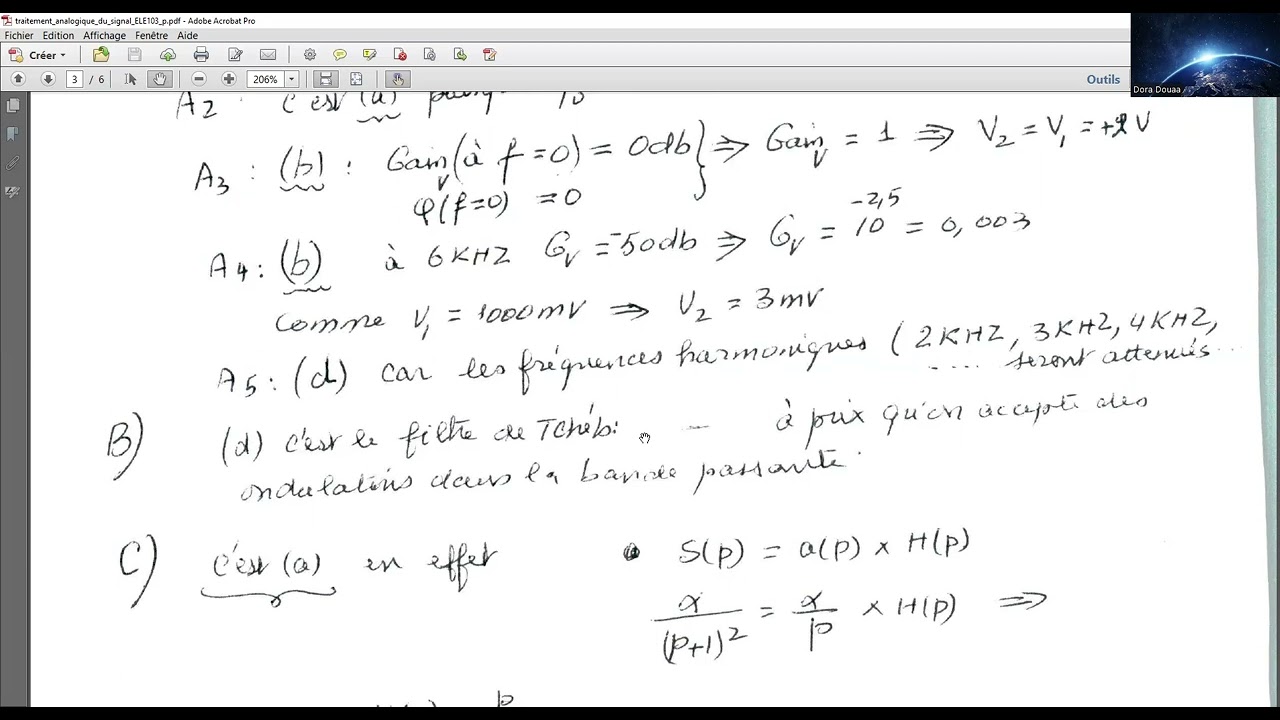 traitement_analogique_du_signal_ELE103_p.pdf - Adobe Acrobat Pro
Fichier Edition Affichage Fenêtre Aide
Créer
3 / 6 206% Outils
Dora Douaa
A2 : c'est (a) 10
A3 : (b) : Gain_v (à f=0) = 0db } ⇒ Gain_v = 1 ⇒ V2 = V1 = + V
φ(f=0) = 0
A4 : (b) à 6KHZ G_v = -50db ⇒ G_v = 10^-2,5 = 0,003
Comme V1 = 1000mV ⇒ V2 = 3mV
A5 : (d) car les fréquences harmoniques ( 2KHZ, 3KHZ, 4KHZ,
.... seront attenués...
B) (d) c'est le filtre de Tchéb. — à prix qu'on accepte des
ondulations dans la bande passante.
C) c'est (a) en effet • S(p) = a(p) × H(p)
α/(p+1)² = α/p × H(p) ⇒
p